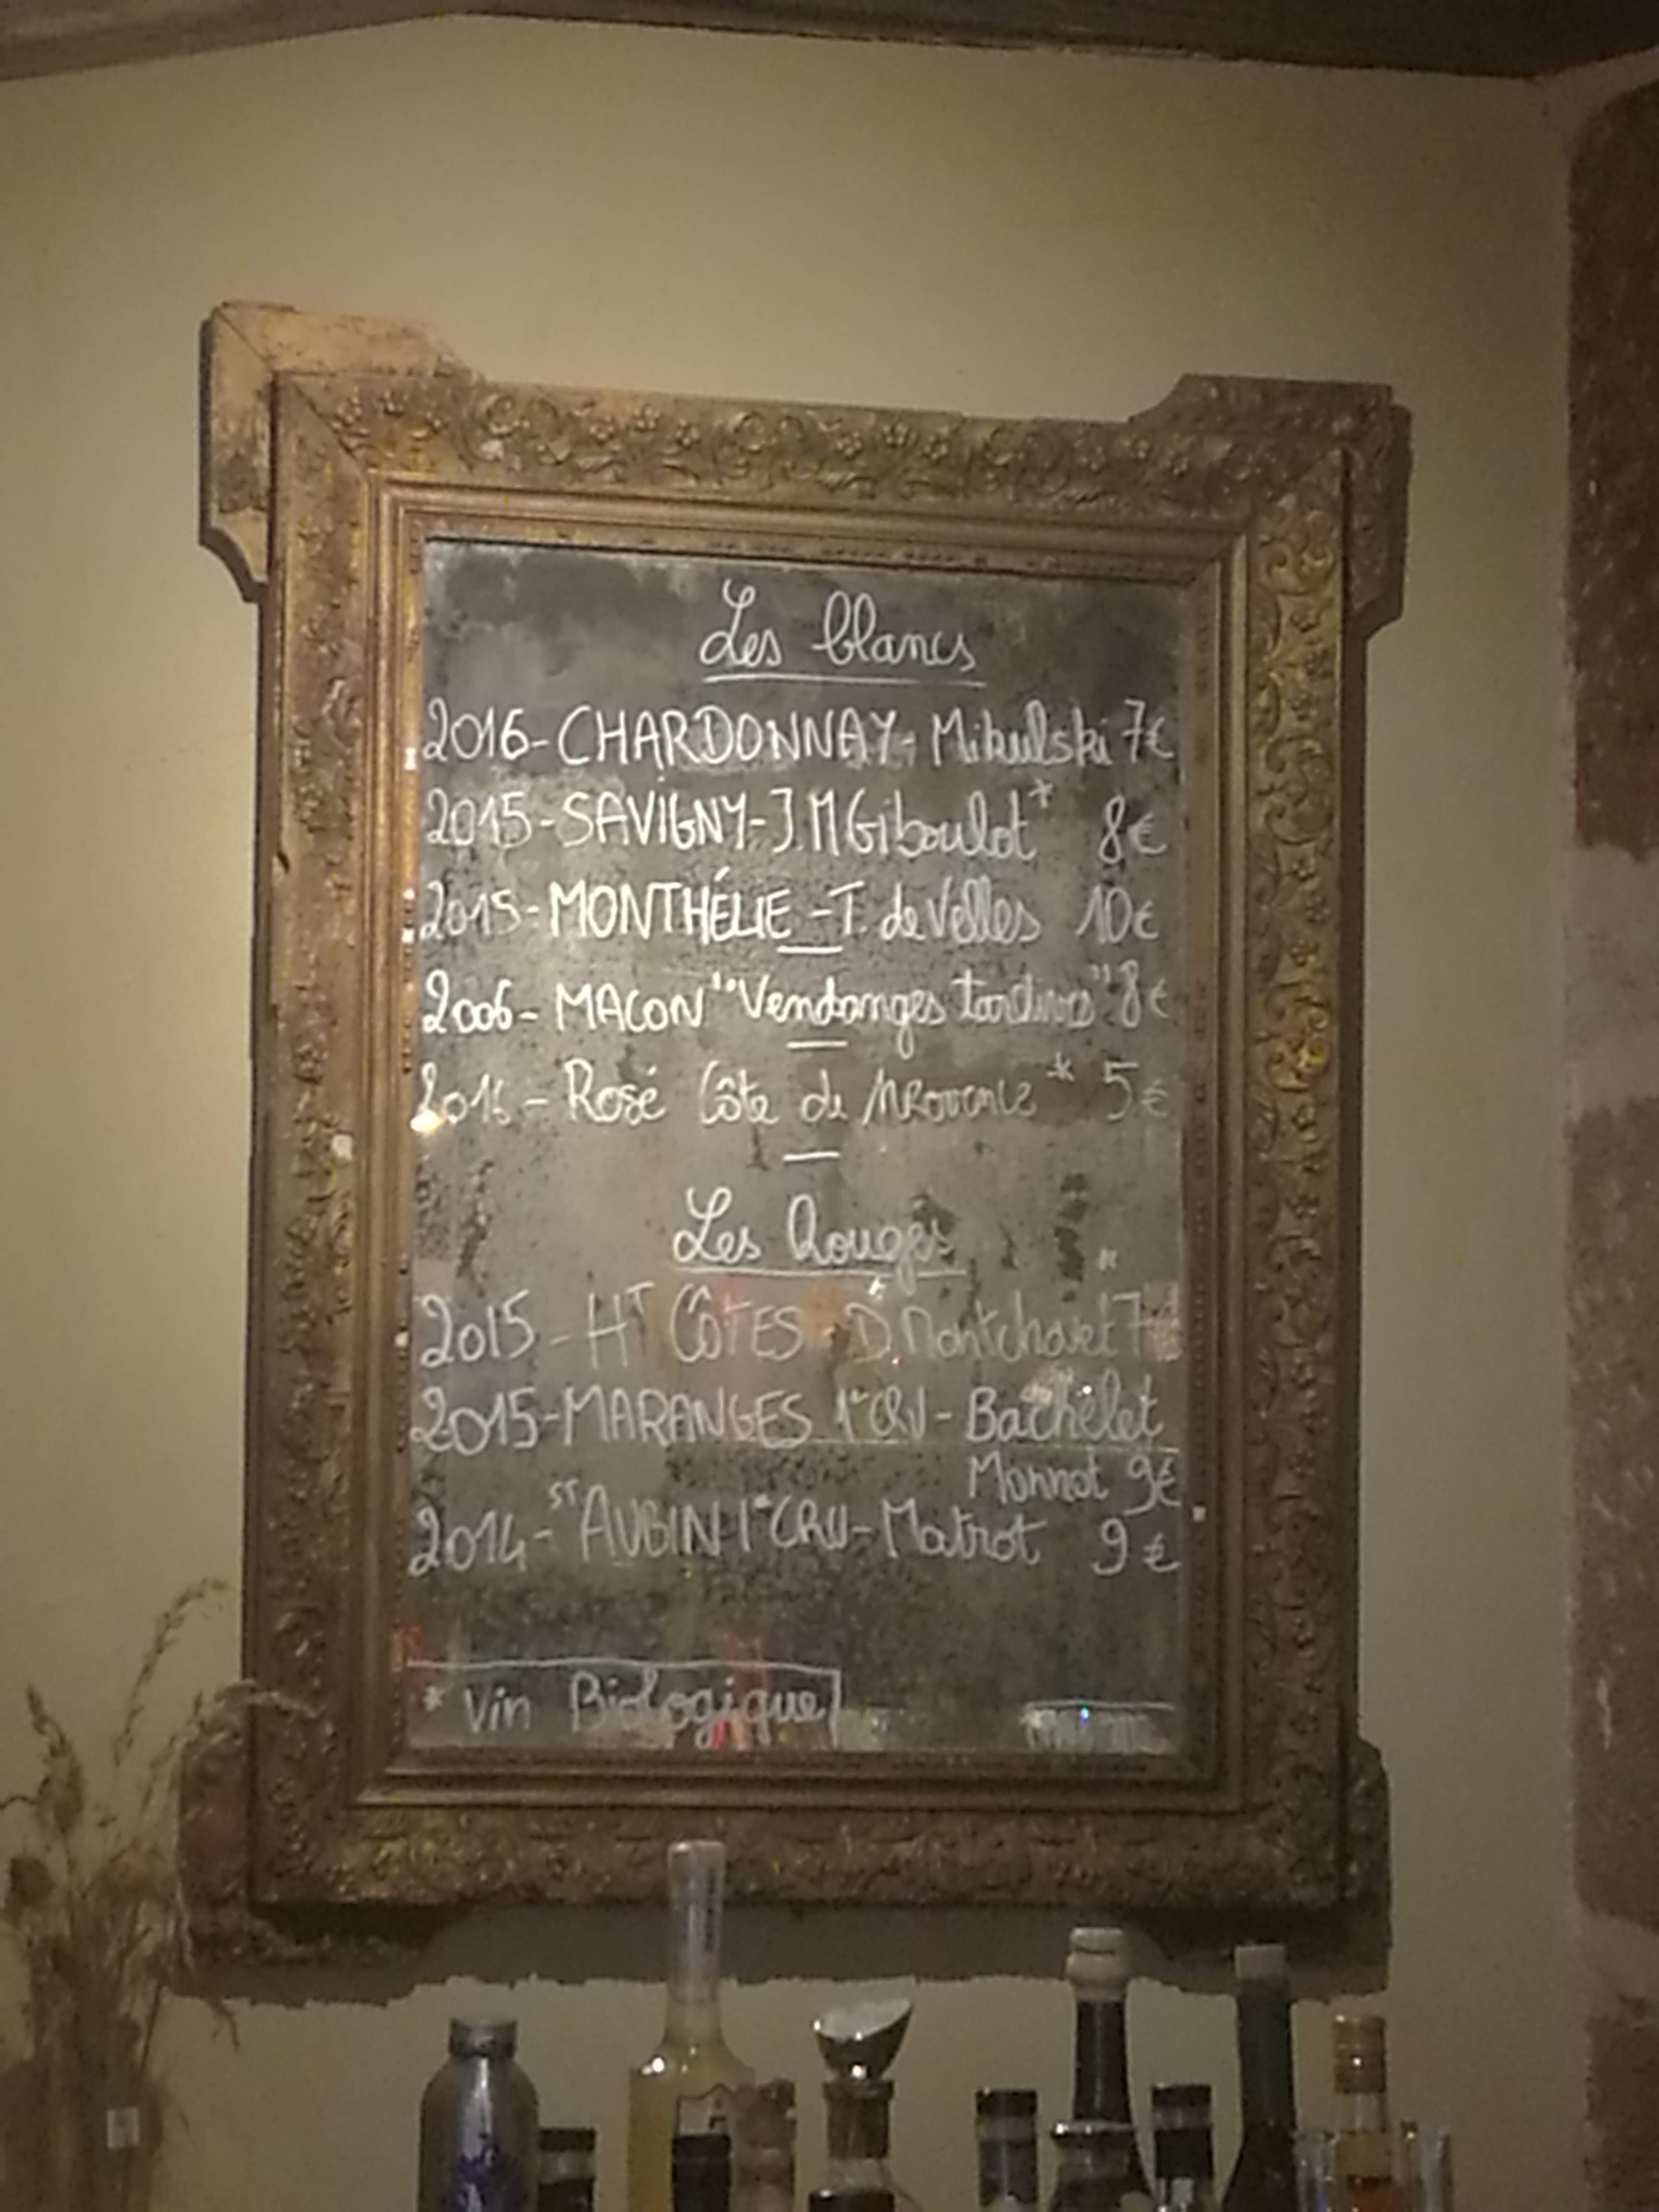 Les blancs
2016-CHARDONNAY-Mikulski 7€
2015-SAVIGNY-J.M Giboulot* 8€
2015-MONTHÉLIE-T. de Velles 10€
2006-MACON "Vendanges tardives" 8€
2016-Rosé Côte de PROVENCE* 5€
Les Rouges
2015-HT CÔTES-D.Montchovet* 7€
2015-MARANGES 1er CRU-Bachelet
Monnot 9€
2014-ST AUBIN 1er CRU-Matrot 9€
* Vin Biologique